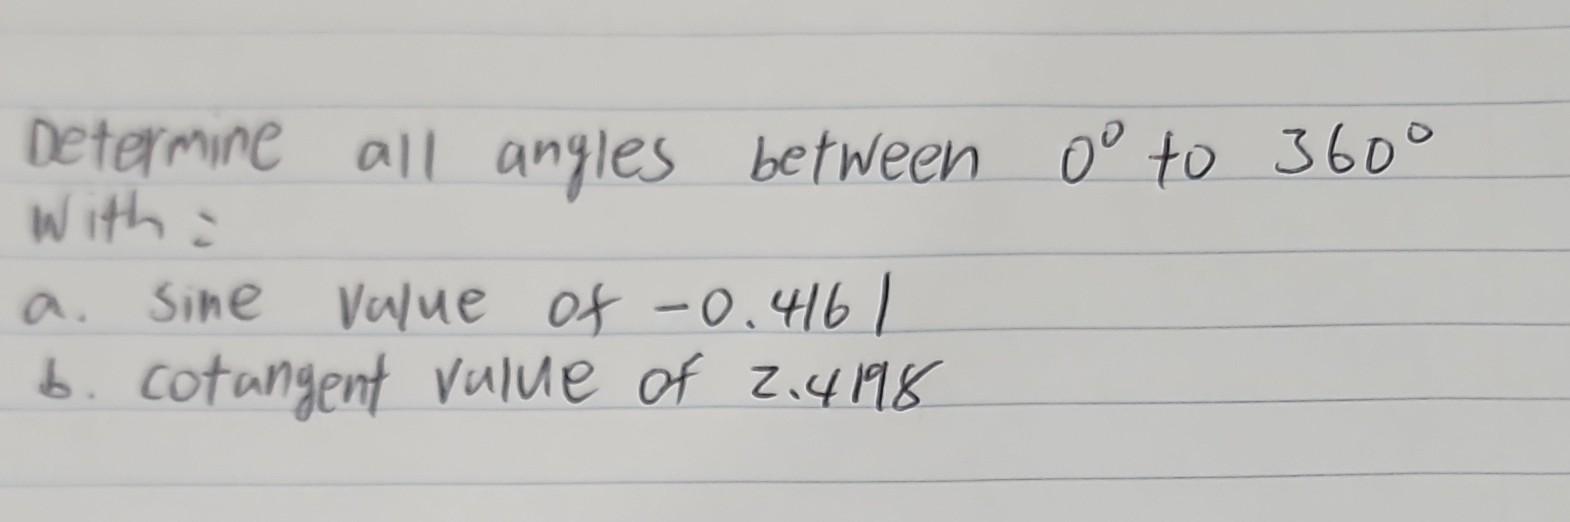 Determine all angles between 0° to 360°
With:
a. sine value of -0.4161
b. cotangent value of 2.4198